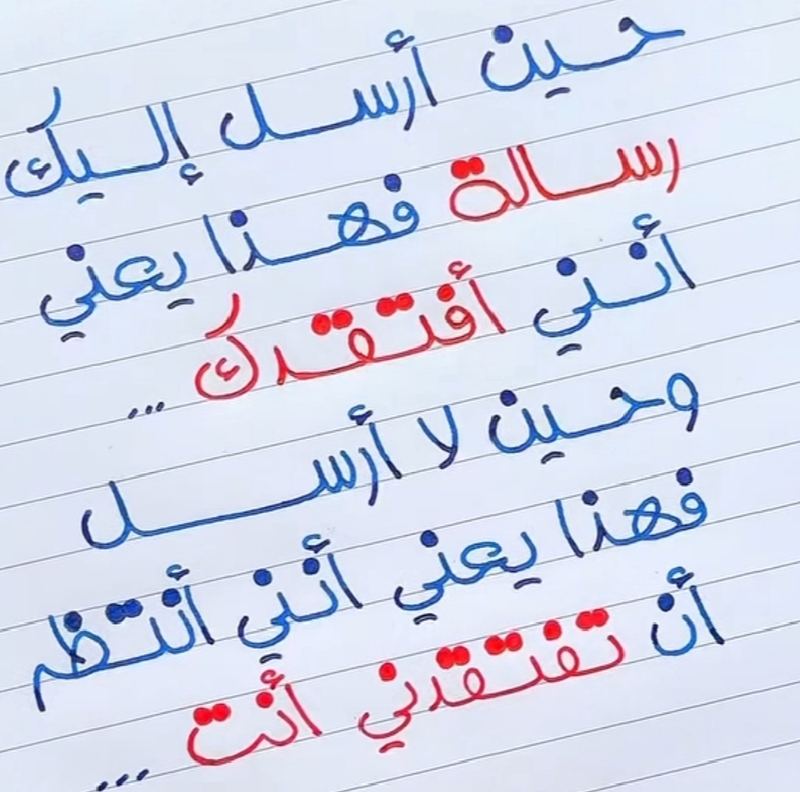 حين أرسل إليك
رسالة فهذا يعني
أنني أفتقدك ...
وحين لا أرسل
فهذا يعني أنني أنتظر
أن تفتقدني أنت ...